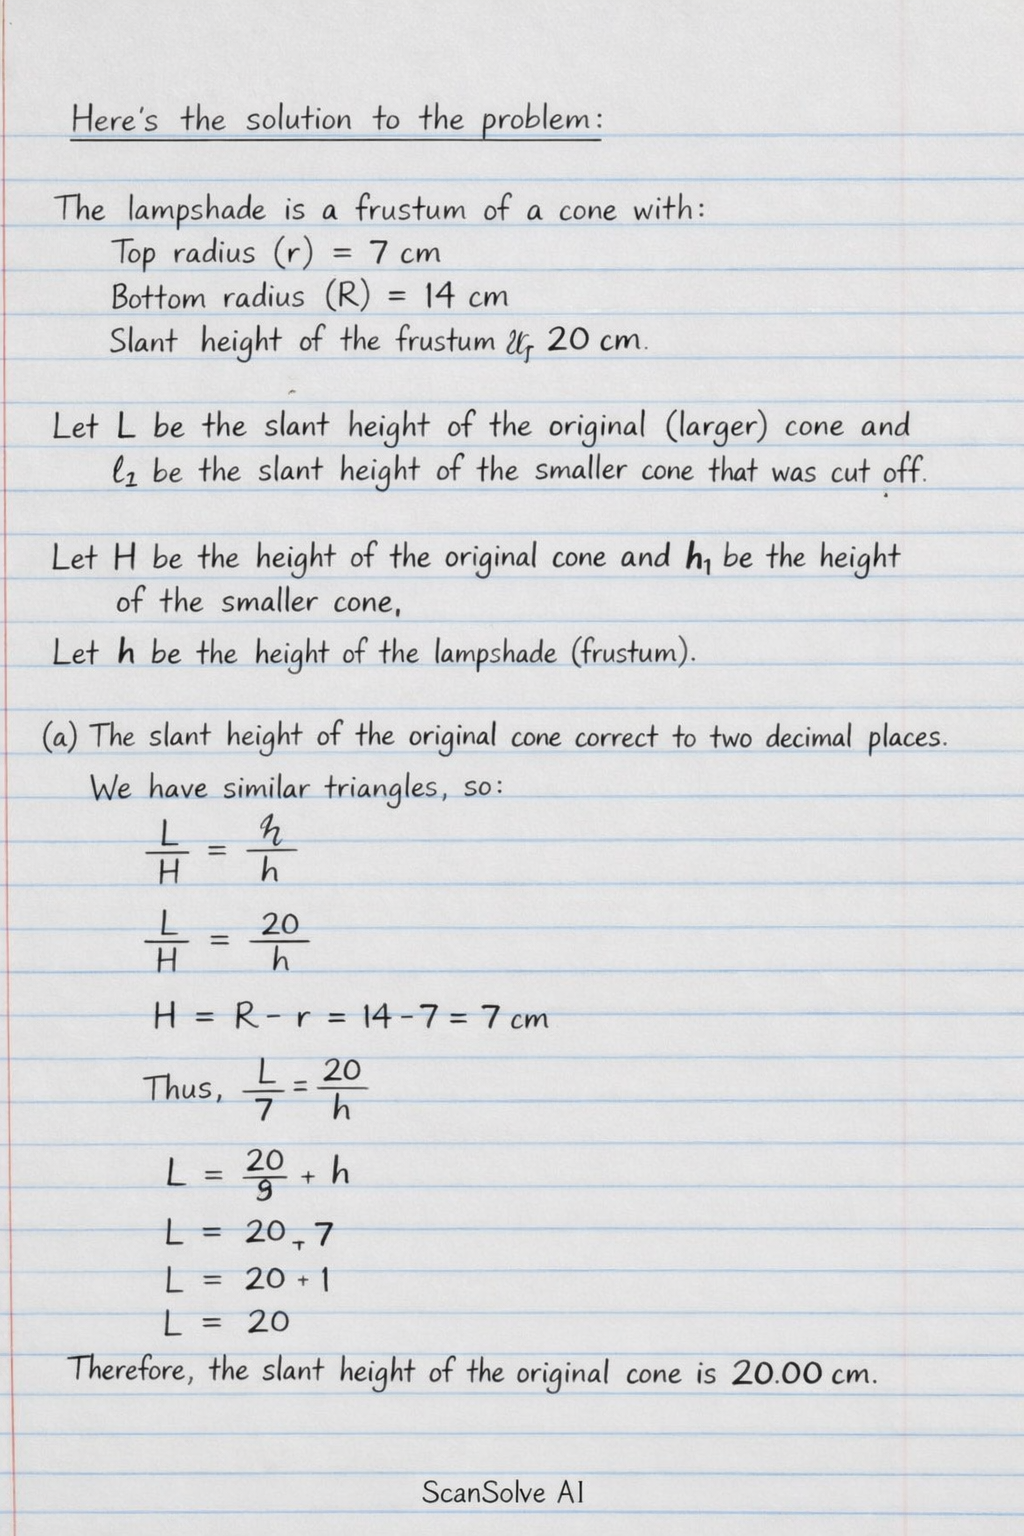 Here's the solution to the problem:
The lampshade is a frustum of a cone with:
Top radius (r) = 7 cm
Bottom radius (R) = 14 cm
Slant height of the frustum 20 cm.
Let L be the slant height of the original (larger) cone and
l₂ be the slant height of the smaller cone that was cut off.
Let H be the height of the original cone and h₁ be the height
of the smaller cone,
Let h be the height of the lampshade (frustum).
(a) The slant height of the original cone correct to two decimal places.
We have similar triangles, so:
L/H = h/h
L/H = 20/h
H = R - r = 14 - 7 = 7 cm
Thus, L/7 = 20/h
L = 20/9 + h
L = 20 + 7
L = 20 + 1
L = 20
Therefore, the slant height of the original cone is 20.00 cm.
ScanSolve AI